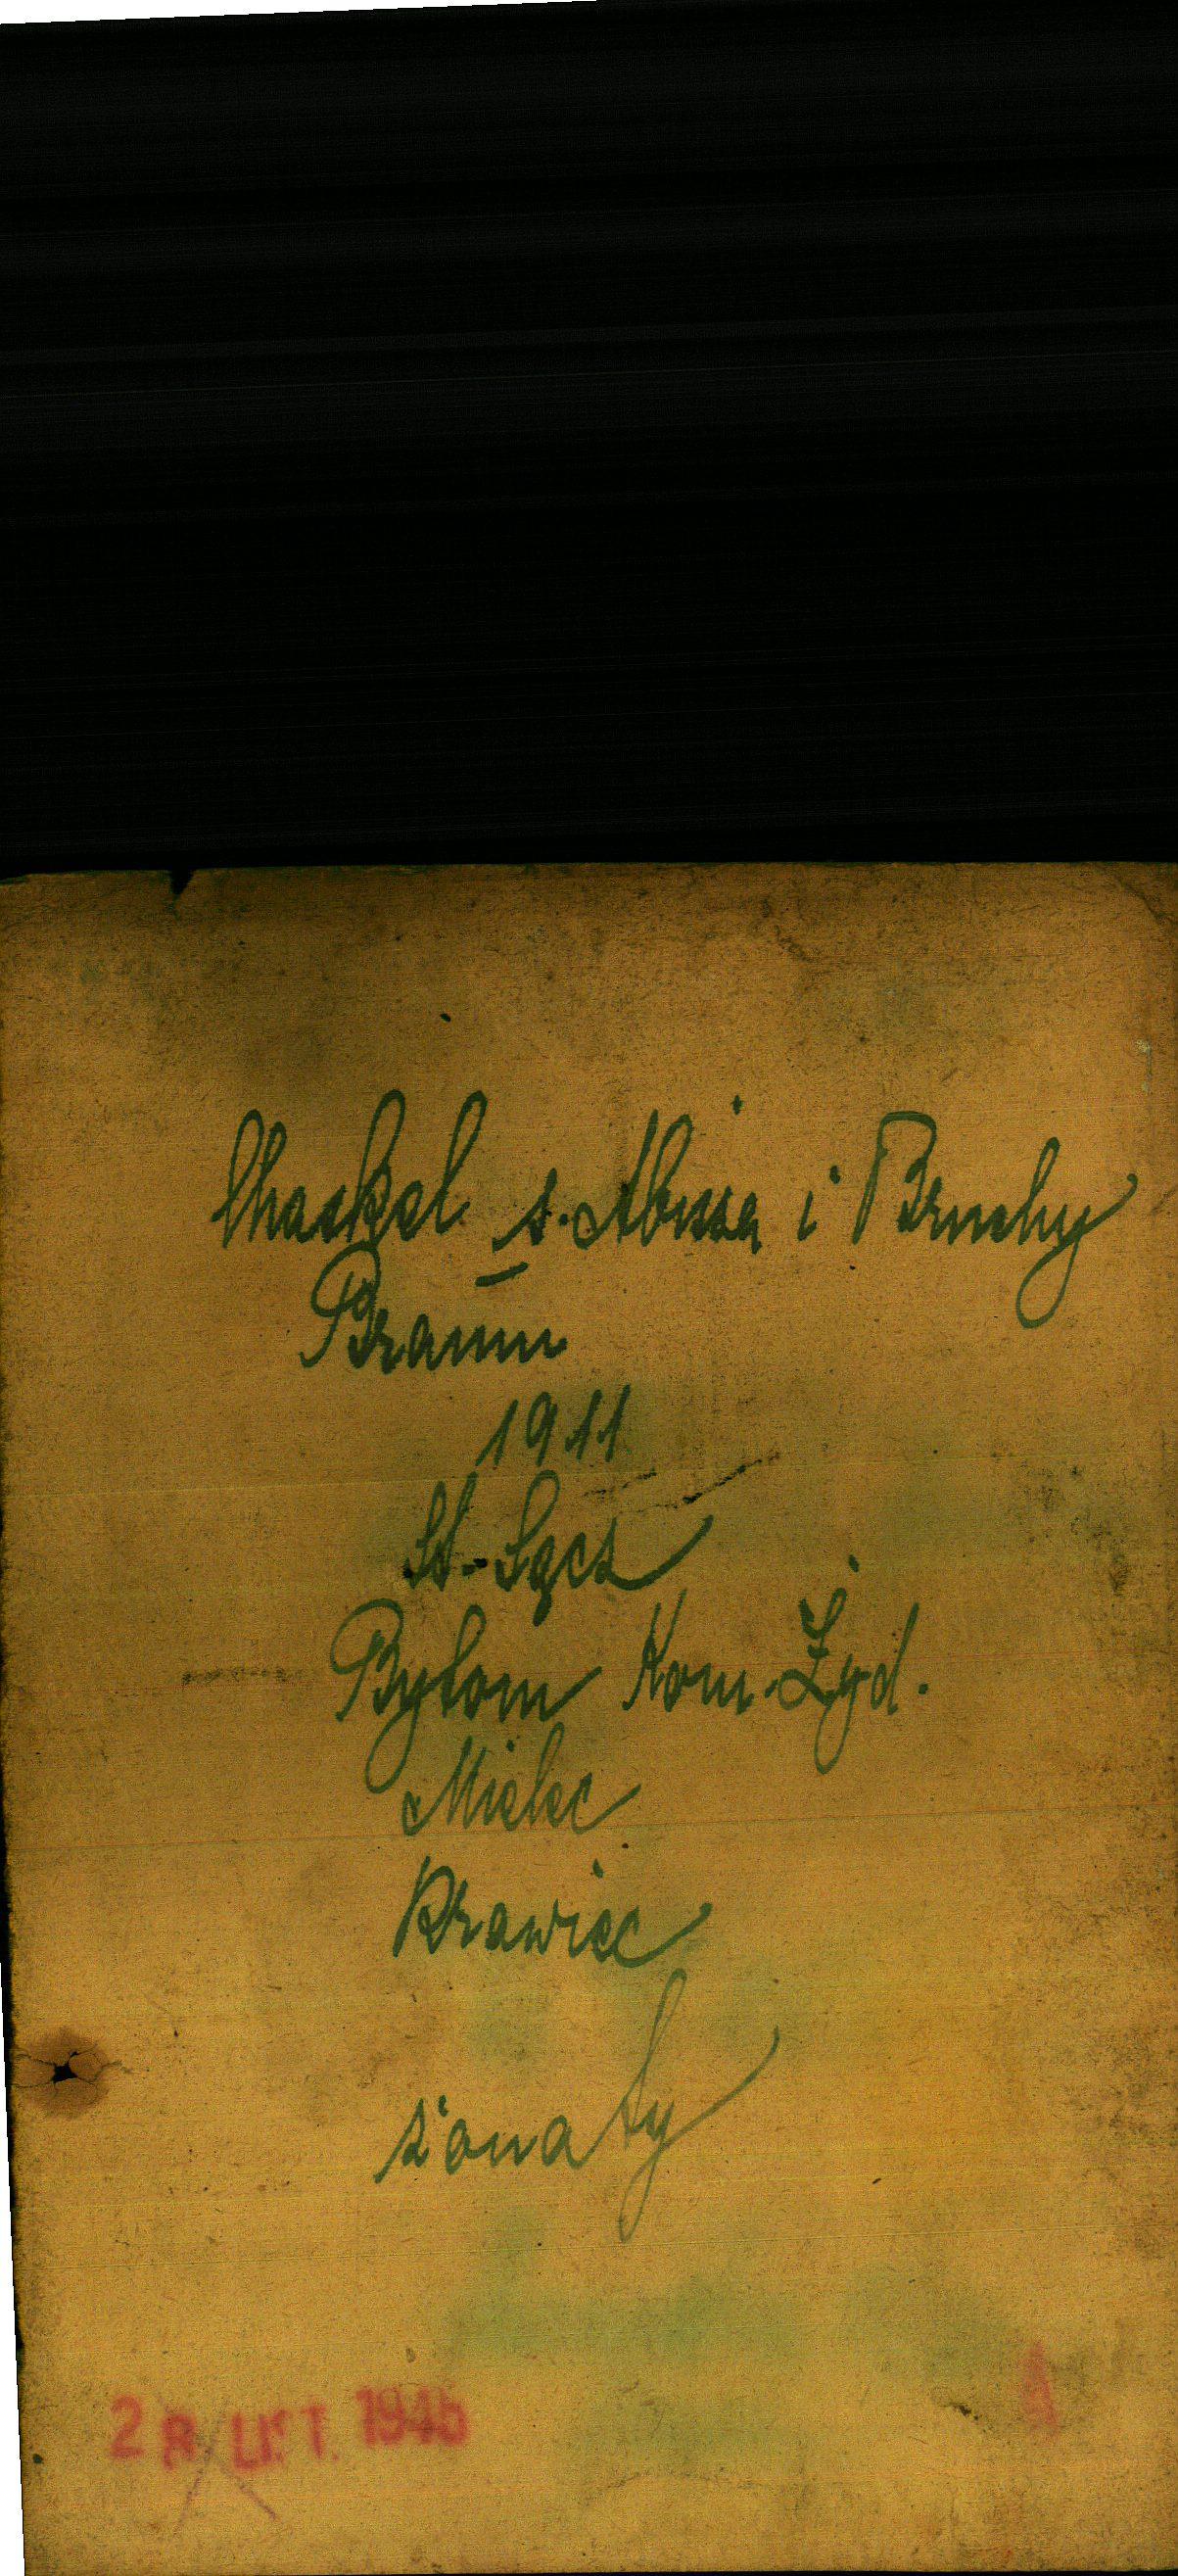 Chaskel s. Abusa i Bruchy
Braun
1911
St.-Sącz
Bytom Kom. Żyd.
Mielec
Krawiec
żonaty
2 LUT. 1946